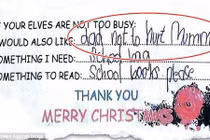 IF YOUR ELVES ARE NOT TOO BUSY:
WOULD ALSO LIKE: dad not to hurt Mummy
SOMETHING I NEED: School bag
SOMETHING TO READ: School books please
THANK YOU
MERRY CHRISTMAS